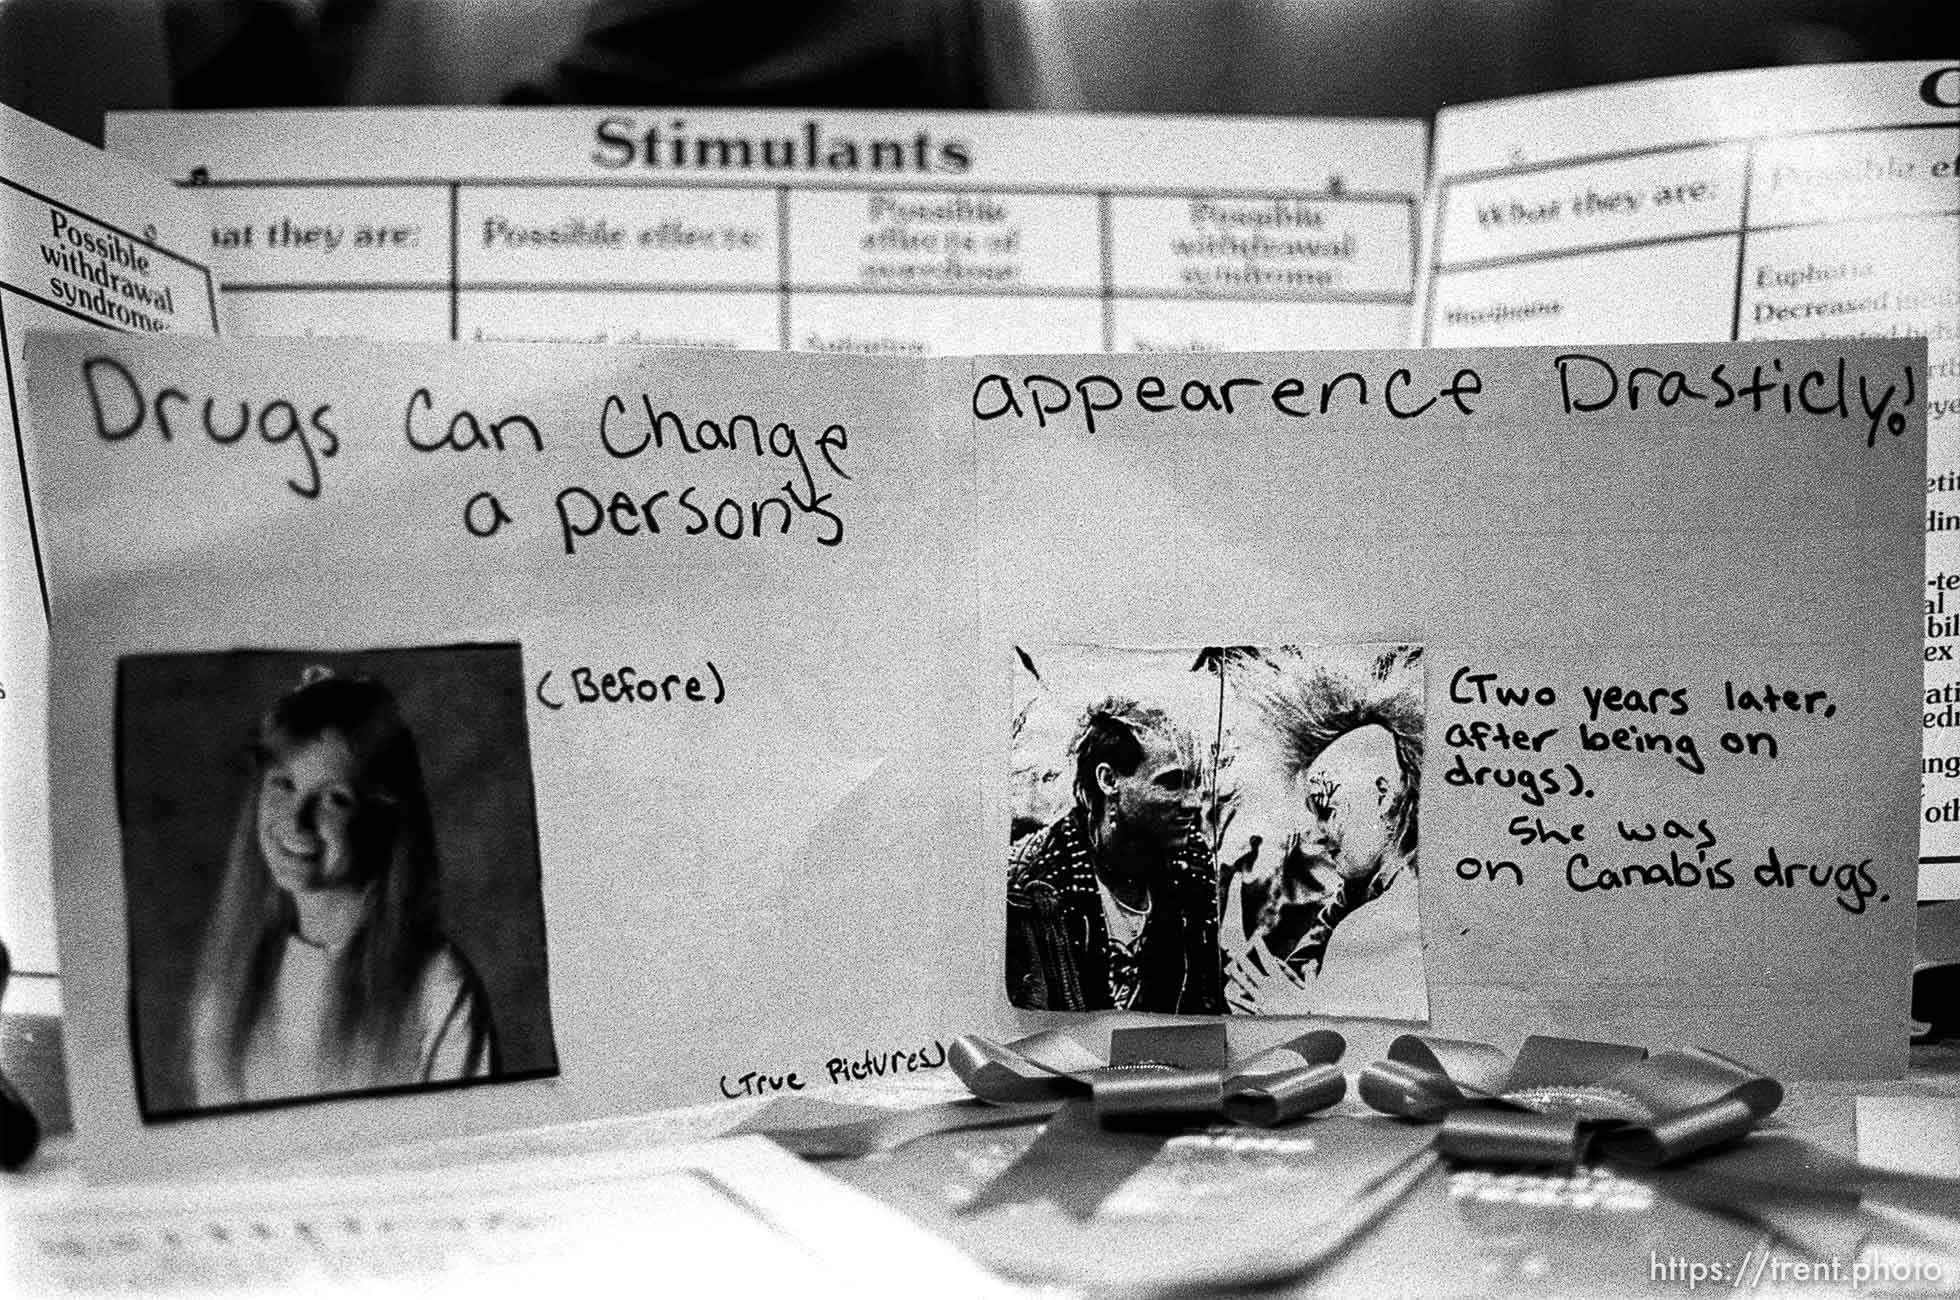 Stimulants
Possible
withdrawal
syndrome
they are:
Possible effects
Possible
effects of
overdose
Possible
withdrawal
syndrome
What they are:
Possible
Marijuana
Euphoria
Decreased
Drugs Can Change
a person's
appearence Drasticly!
(Before)
(Two years later,
after being on
drugs).
She was
on Canabis drugs.
(True Pictures)
https://trent.photo